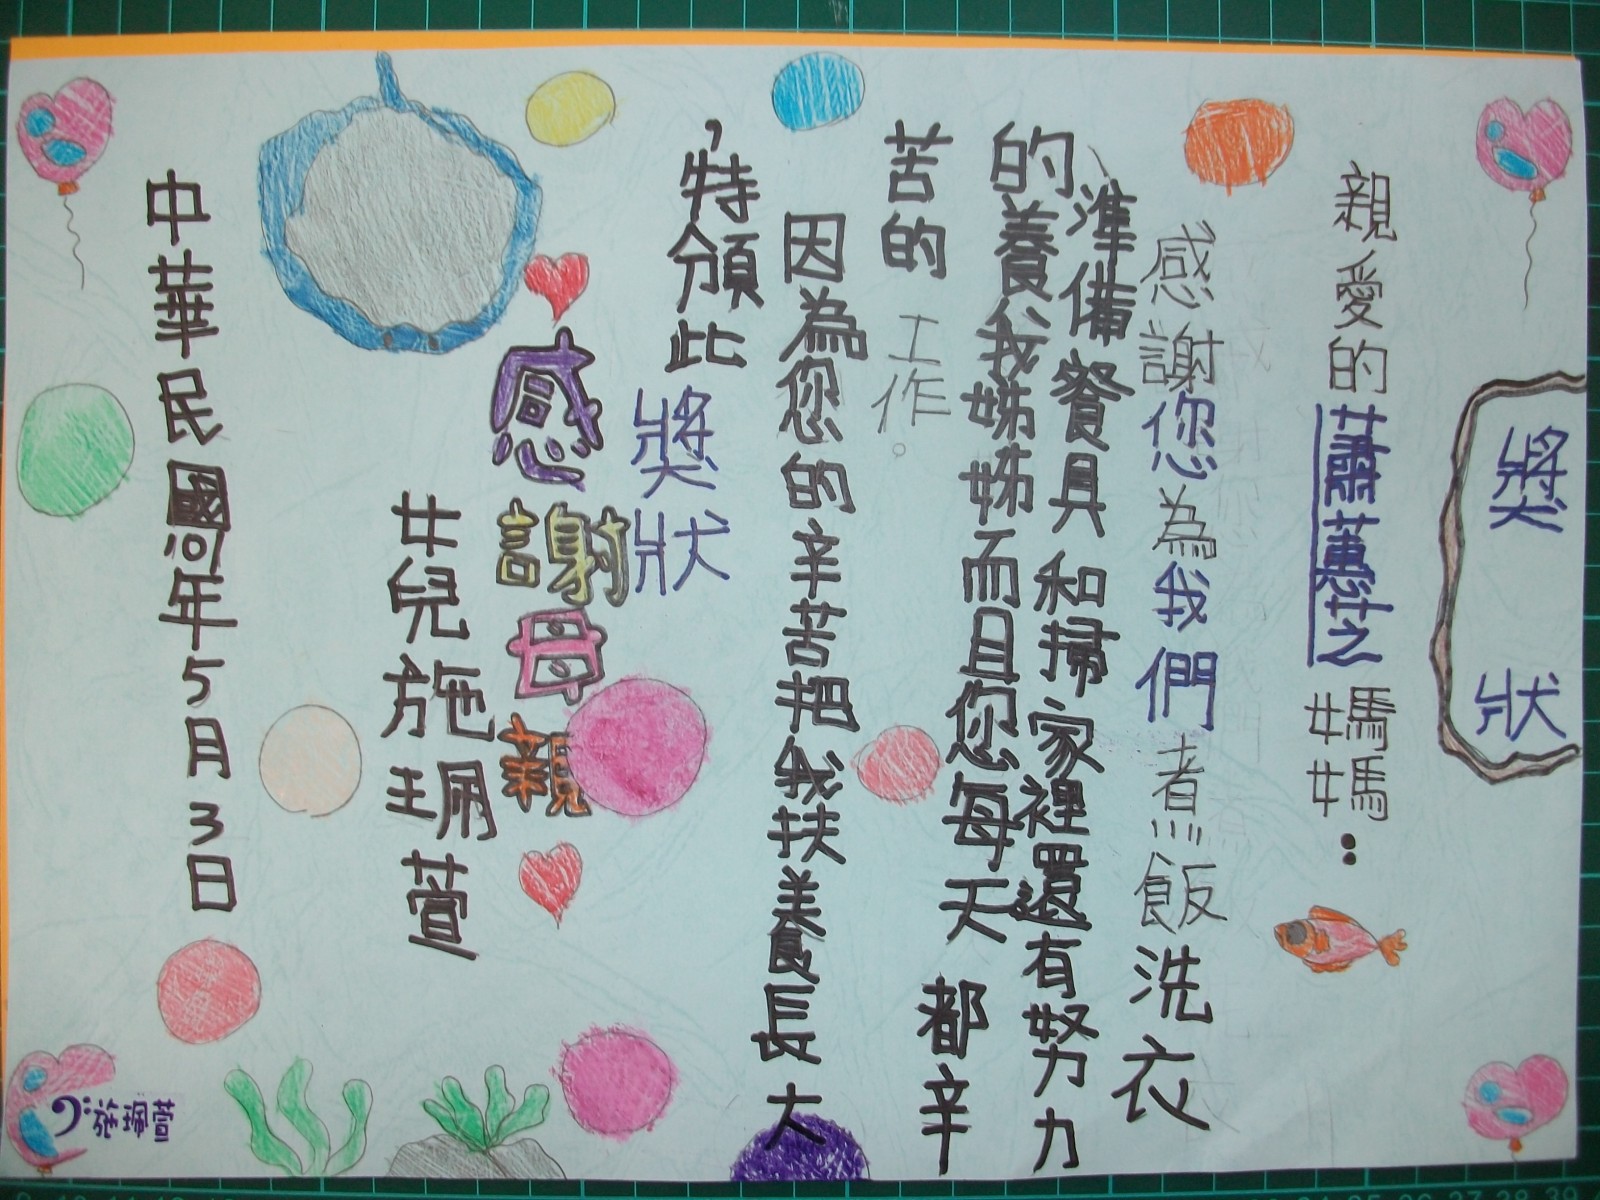 獎狀
親愛的蕭蕙芝媽媽：
感謝您為我們煮飯洗衣
、準備餐具和掃家裡還有努力
的養我姊姊而且您每天都辛
苦的工作。
因為您的辛苦把我扶養長大
，特頒此獎狀
感謝母親
女兒施珮萱
中華民國101年5月3日
施珮萱